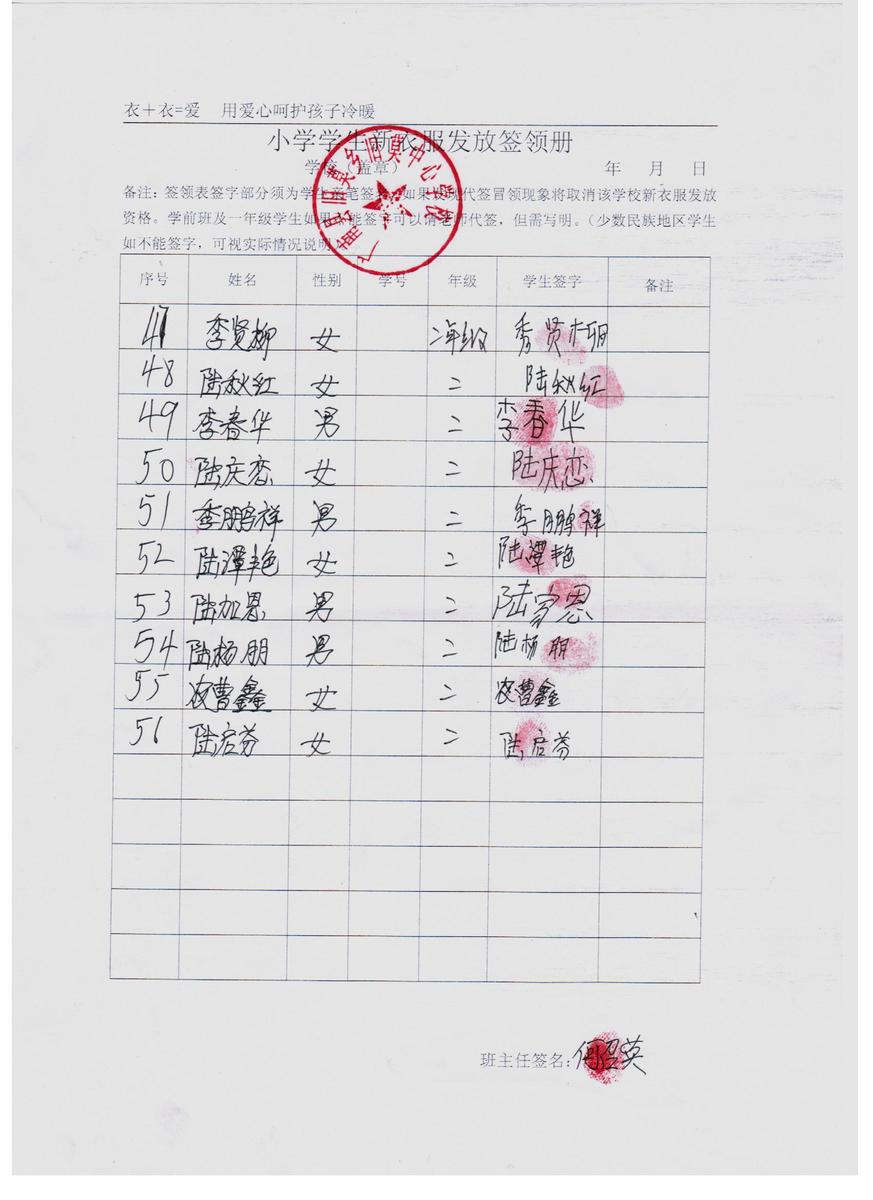 衣＋衣=爱 用爱心呵护孩子冷暖
小学学生新衣服发放签领册
学校（盖章） 年 月 日
广南县旧莫乡旧莫中心学校
备注：签领表签字部分须为学生亲笔签字，如果发现代签冒领现象将取消该学校新衣服发放
资格。学前班及一年级学生如果不能签字可以请老师代签，但需写明。（少数民族地区学生
如不能签字，可视实际情况说明）
序号 姓名 性别 学号 年级 学生签字 备注
47 季贤柳 女 二年级 秀贤柳
48 陆秋红 女 二 陆秋红
49 李春华 男 二 李春华
50 陆庆恋 女 二 陆庆恋
51 季鹏祥 男 二 季鹏祥
52 陆潭艳 女 二 陆潭艳
53 陆加恩 男 二 陆家恩
54 陆杨朋 男 二 陆杨朋
55 农曹鑫 女 二 农曹鑫
56 陆启芬 女 二 陆启芬
班主任签名：